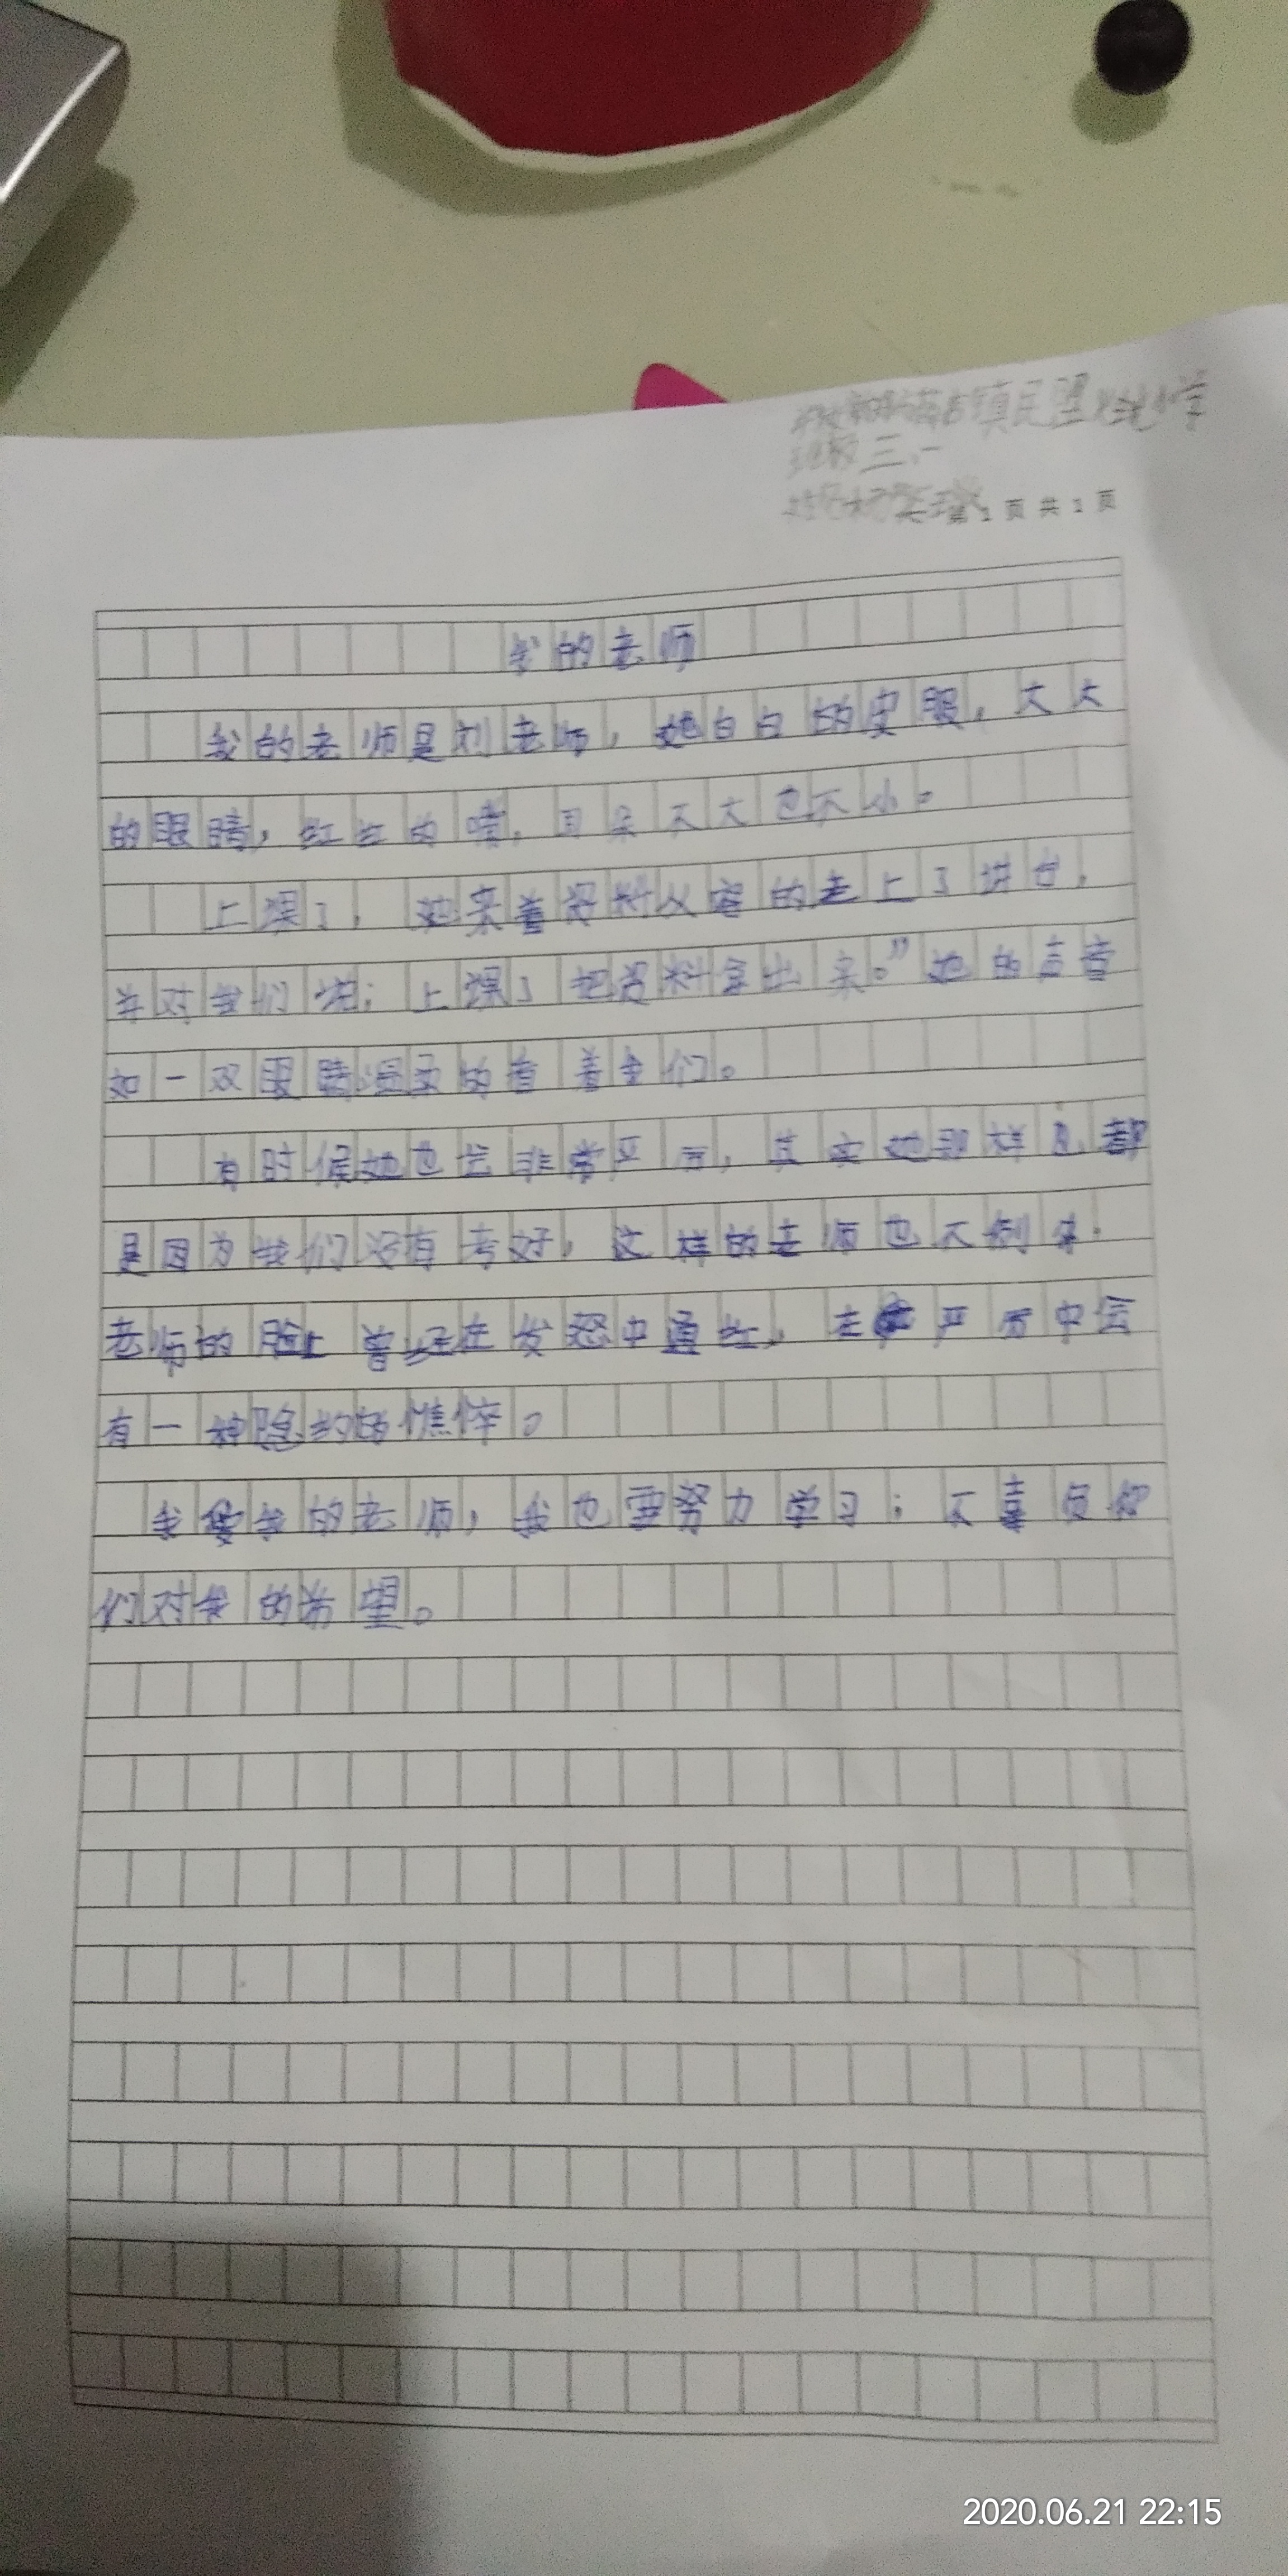 班级 三、一
第 1 页 共 1 页
我的老师
我的老师是刘老师，她白白的皮服，大大
的眼睛，红红的嘴，耳朵不大也不小。
上课了，她来着资料从容的走上了讲台，
并对我们说：上课了把资料拿出来。”她的声音
如一双眼睛温柔的看着我们。
有时候她也会非常严厉，其实她那样也都
是因为我们没有考好，这样的老师也不例外.
老师的脸上曾经在发怒中通红，在严厉中会
有一种隐约的憔悴。
我爱我的老师，我也要努力学习；不辜负你
们对我的希望。
2020.06.21 22:15